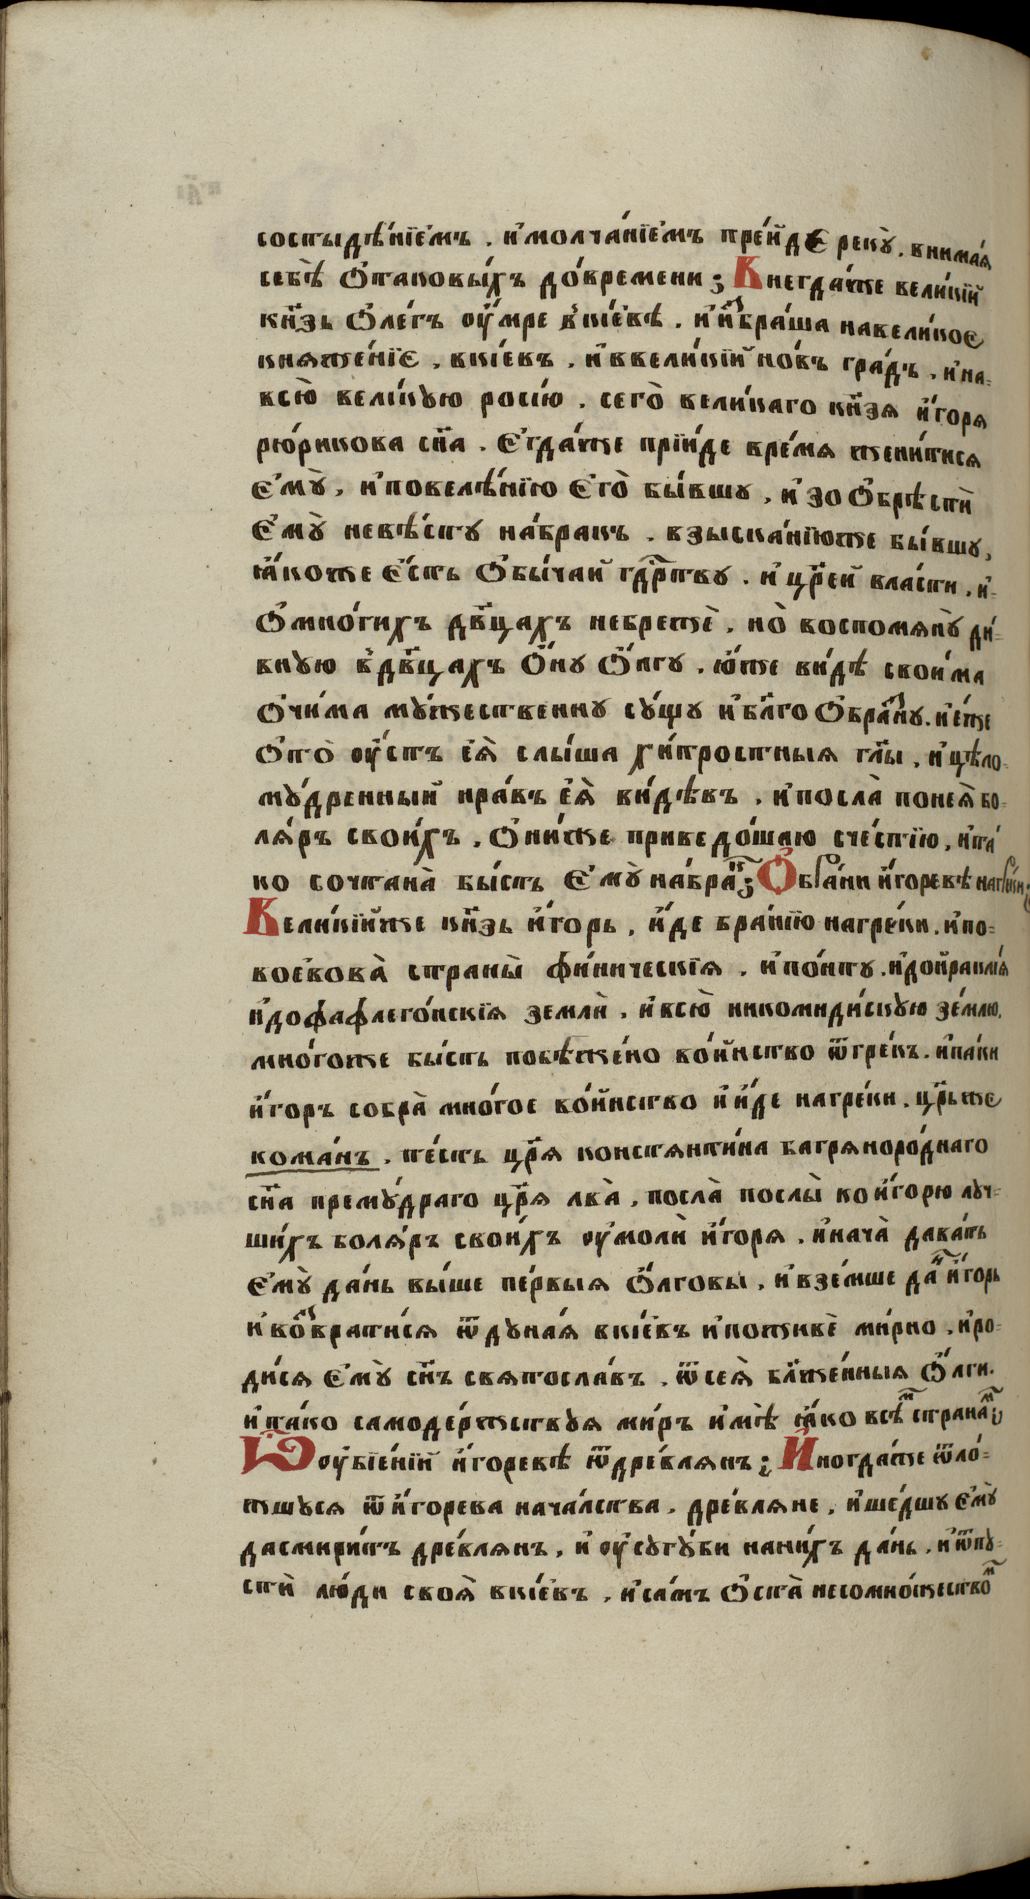 состыдѣ́нїе́мъ . и҆молча́нїе́мъ пре́йдє реку̀ . внима́ѧ
себѣ̀ ѻ҆таковы́хъ до́времени ; Внегда́же вели́кїй
кн҃зь ѻ҆ле́гъ оу҆́мре в̾кі́евѣ . и҆и҆з̾бра́ша навели́коє
кнѧже́нїє , вкі́евъ , и҆ввели́кїй но́въ гра́дъ , и҆на-
всю̀ вели́кую росі́ю . сего̀ вели́каго кн҃зѧ и҆́горѧ
рю́рикова сн҃а . є҆гда́же прїи́де вре́мѧ жени́тисѧ
є҆му̀ , и҆повелѣ́нїю є҆го̀ бы́вшу , и҆зѻ҆брѣстѝ
є҆му̀ невѣ́сту на́бракъ . взыска́нїюже бы́вшу ,
ꙗ҆́коже є҆́сть ѻ҆бы́чай гдⷭ҇ртву . и҆ цр҃ей власти , и҆-
ѻ҆мно́гихъ дв҃цахъ небрежѐ , но̀ воспомѧну̀ ди́-
вную в̾дв҃цахъ ѻ҆́ну ѻ҆́лгу . ю҆́же ви́дѣ свои́ма
ѻ҆чи́ма му́жественну су́щу и҆бл҃гоѻ҆бра́зⷩ҇у . и҆є҆́же
ѻ҆то̀ оу҆́стъ є҆ѧ̀ слы́ша хи́тростныѧ гл҃ы , и҆цѣло-
му́дренный нра́въ є҆ѧ̀ ви́дѣвъ , и҆посла̀ понеѧ̀ бо-
лѧ́ръ свои́хъ , ѻ҆ни́же приведо́шаю сче́стїю , и҆та́
ко сочтана̀ бы́сть є҆му̀ на́браⷦ҇ ; Ѻ҆ бра́ни и҆́горевѣ нагре́ки ;
Вели́кїйже кн҃зь и҆́горь , и҆́де бра́нїю нагре́ки . и҆по-
воева̀ страны̀ фини́ческїѧ . и҆по́нту . и҆дои҆ракли́ѧ
и҆дофафлего́нскїѧ землѝ . и҆всю̀ никомиди́скую зе́млю.
мно́гоже бы́сть побѣже́но во́инство ѿгре́къ . и҆па́ки
и҆́горъ собра̀ мно́гое во́инство и҆ и҆́де нагре́ки . цр҃ьже
кома́нъ . те́сть цр҃ѧ констѧнти́на багрѧноро́днаго
сн҃а прему́драго цр҃ѧ льва̀ , посла̀ послы̀ кои҆́горю луч-
шихъ болѧ́ръ свои́хъ оу҆молѝ и҆́горѧ . и҆нача̀ дава́ть
є҆му̀ да́нь вы́ше пе́рвыѧ ѻ҆́лговы , и҆взе́мше да́ⷩ҇ и҆́горь
и҆воⷥ҇врати́сѧ ѿдуна́ѧ вкі́евъ и҆поживѐ ми́рно . и҆ро-
ди́сѧ є҆му̀ сн҃ъ свѧтосла́въ . ѿсеѧ̀ бл҃же́нныѧ ѻ҆́лги.
и҆та́ко самоде́ржствуѧ ми́ръ и҆мѣ̀ ꙗ҆́ко всѣⷨ҇ страна́ⷨ҇ ;
Ѡ҆оу҆бїе́нїй и҆́горевѣ ѿдре́влѧнъ ; И҆ногда́же ѿло́-
жшусѧ ѿи҆́горева нача́лства . дре́влѧне , и҆ше́дшу є҆му̀
дасмири́тъ дре́влѧнъ , и҆ оу҆сугу́би нани́хъ да́нь . и҆ѿпу-
стѝ лю́ди своѧ̀ вкі́евъ , и҆са́мъ ѻ҆ста̀ несомно́жествоⷨ҇